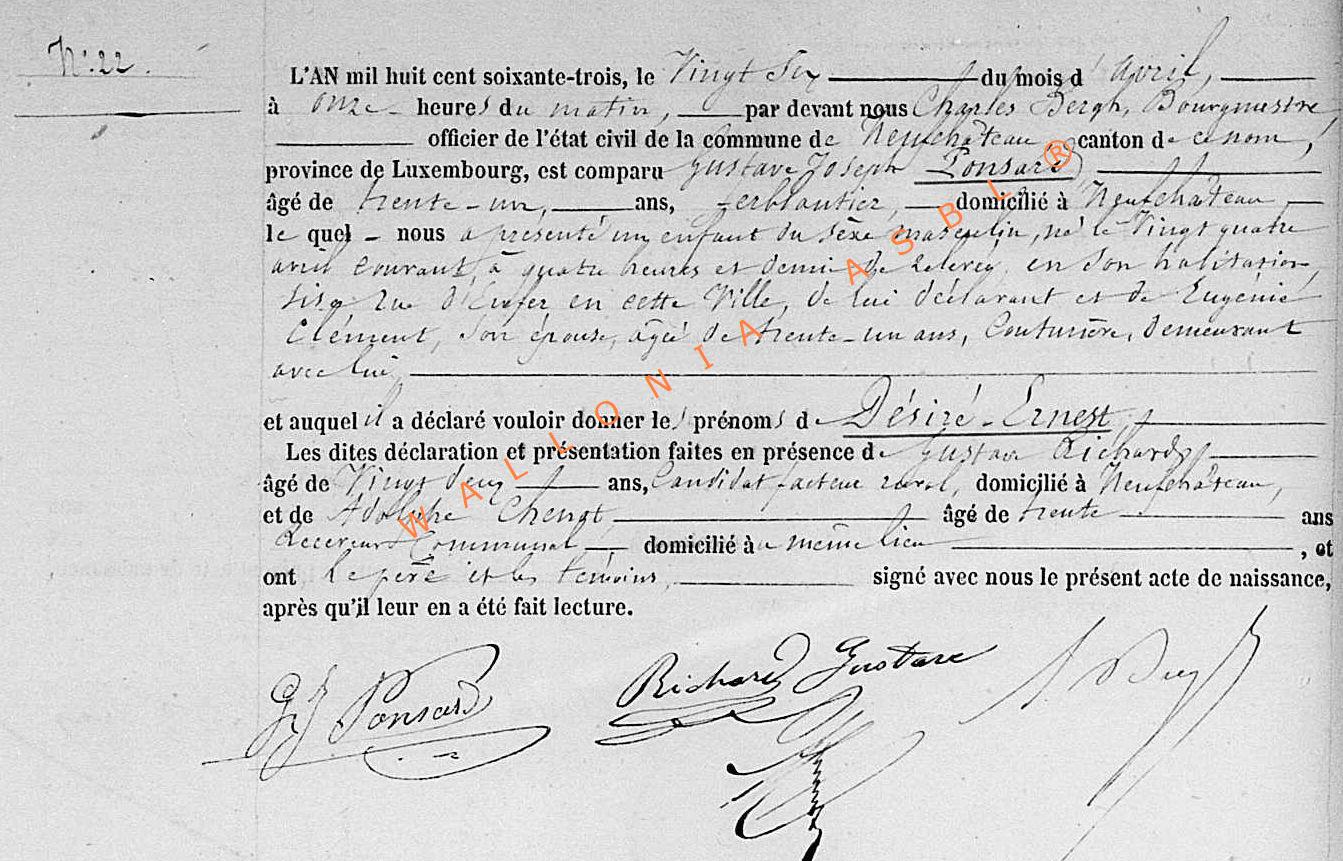 N° 22.
L'AN mil huit cent soixante-trois, le Vingt Six du mois d' Avril,
à onze heures du matin, par devant nous Charles Bergh, Bourgmestre,
officier de l'état civil de la commune de Neufchâteau canton de ce nom,
province de Luxembourg, est comparu Gustave Joseph Ponsard
âgé de trente-un, ans, ferblantier, domicilié à Neufchâteau
le quel nous a présenté un enfant du sèxe masculin, né le Vingt quatre
avril courant, à quatre heures et demie de relevée, en son habitation,
Sise rue d'Enfer en cette Ville, de lui déclarant et de Eugénie
Clément, son épouse, âgée de trente-un ans, Couturière, demeurant
avec lui,
et auquel il a déclaré vouloir donner les prénoms de Désiré-Ernest,
Les dites déclaration et présentation faites en présence de Gustave Richard
âgé de Vingt deux ans, Candidat facteur rural, domicilié à Neufchâteau,
et de Adolphe âgé de trente ans
Receveur Communal, domicilié au même lieu , et
ont le père et les témoins, signé avec nous le présent acte de naissance,
après qu'il leur en a été fait lecture.
GJ Ponsard Richard Gustave
WALLONIA ASBL ®